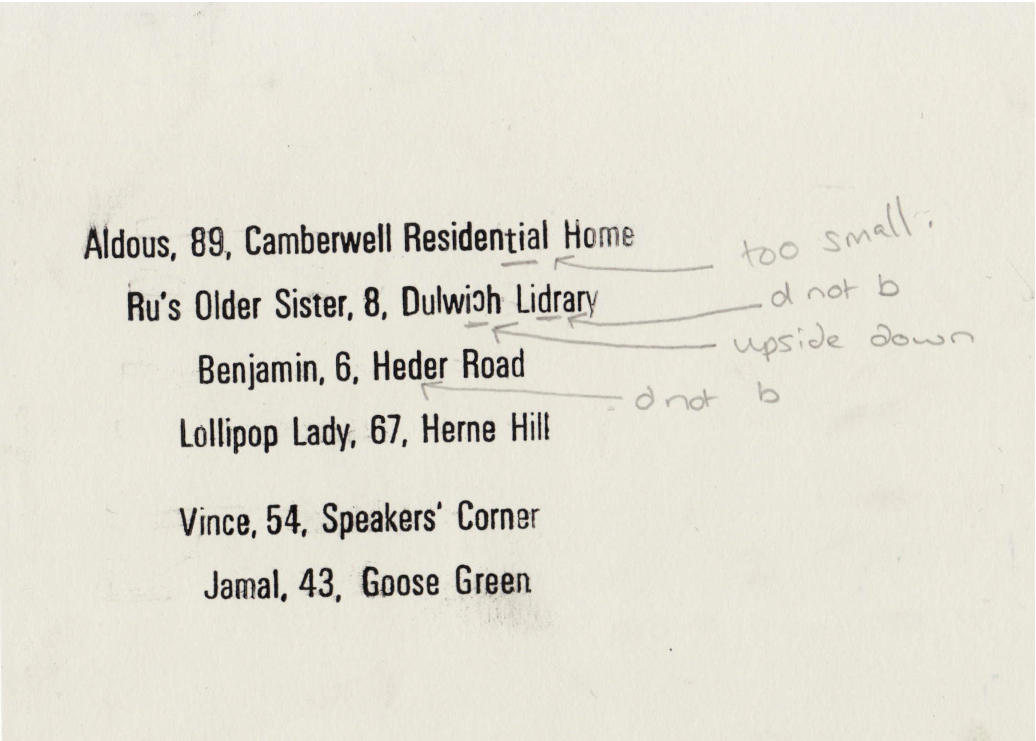 Aldous, 89, Camberwell Residential Home
too small.
Ru's Older Sister, 8, Dulwich Lidrary
d not b
upside down
Benjamin, 6, Heder Road
d not b
Lollipop Lady, 67, Herne Hill
Vince, 54, Speakers' Corner
Jamal, 43, Goose Green